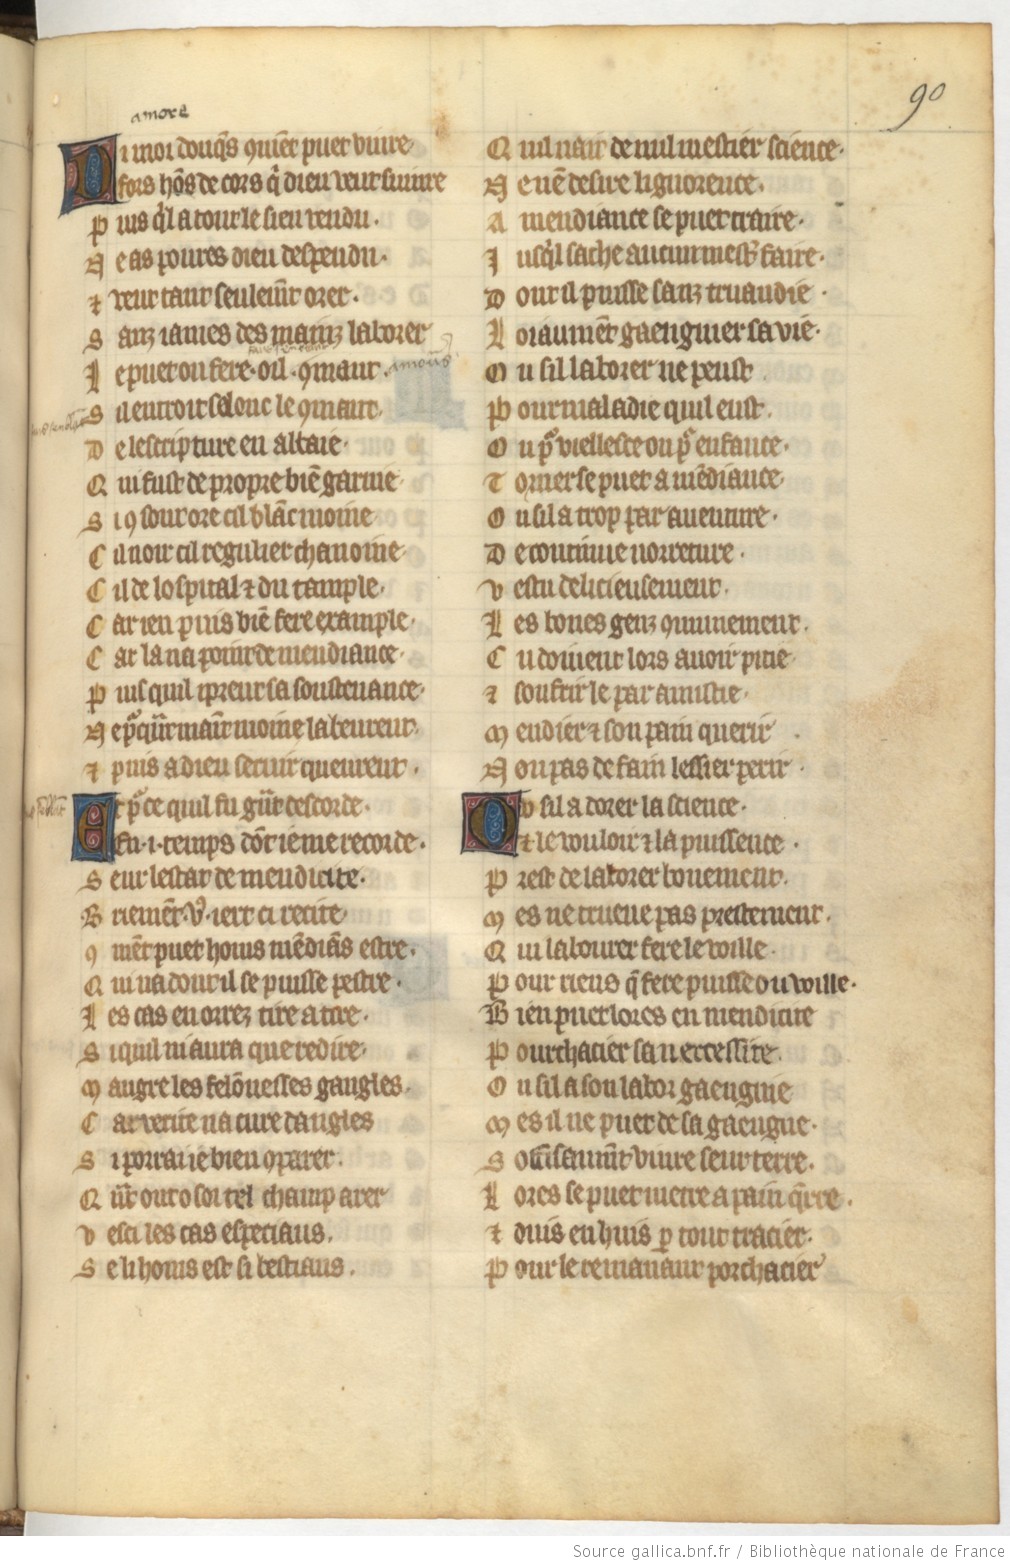 90
amore
Di moi donq̃s 9mẽt puet viure
fors hõs de cors q̃ dieu veut suiure
Puis q̃l a tout le sien vendu.
Ne as poures dieu despendu.
⁊ veut tant seulem̃t orer.
Sanz iames des mainz laborer
Le puet on fere. oil. 9mant. amoʳs
Sil entroit selonc le 9mant.
De lescripture en altaie.
Qui fust de propre biẽ garnie
Si 9 sont ore cil blãc moine
Cil noir cil regulier chanoine.
Cil de lospital ⁊ du tample.
Car ien puis biẽ fere example.
Car la na point de mendiance.
Puis quil i prent sa soustenance.
Ne pꝰq̃t maĩt moine labeurent.
⁊ puis a dieu seruir queurent.
Et pꝰce quil fu g̃nt descorde.
En .i. temps dõt ie me recorde.
Seur lestat de mendicite.
Briemẽt v9 iert ci recite
9mẽt puet homs mẽdiãs estre.
Qui na dont il se puisse pestre.
Les cas en orrez tire a tire.
Si quil ni aura que redire.
Maugre les felõnesses gangles.
Car verite na cure dangles
Si porrai ie bien 9parer.
Q̃nt onc osoi tel champ arer
Vesci les cas especiaus.
Se li homs est si bestiaus.
Quil nait de nul mestier science.
Ne nẽ desire lignorence.
A mendiance se puet traire.
Iusq̃l sache aucun mest̃ faire.
Dont il puisse sanz truandie.
Loiaument gaengnier sa vie.
Ou sil laborer ne peust
Pour maladie quil eust.
Ou pꝰ viellesce ou pꝰ enfance.
Torner se puet a mẽdiance.
Ou sil a trop par auenture.
De coutume norreture.
Vestu delicieusement.
Les bones genz 9munement.
Cu doiuent lors auoir pitie
⁊ soufrir le par amistie.
Mendier ⁊ son pain querir.
Non pas de fain lessier perir.
Ou sil a dorer la science.
⁊ le vouloir ⁊ la puissence.
Prest de laborer bonement.
Mes ne trueue pas prestement.
Qui labourer fere le voille.
Pour riens q̃ fere puisse ou voille.
Bien puet lores en mendicite
Pourchacier sa neccessite.
Ou sil a son labor gaengnie
Mes il ne puet de sa gaengne.
Souffisaumt viure seur terre.
Lores se puet metre a pain q̃rre.
⁊ duis en huis ꝑ tout tracier.
Pour le remanant porchacier